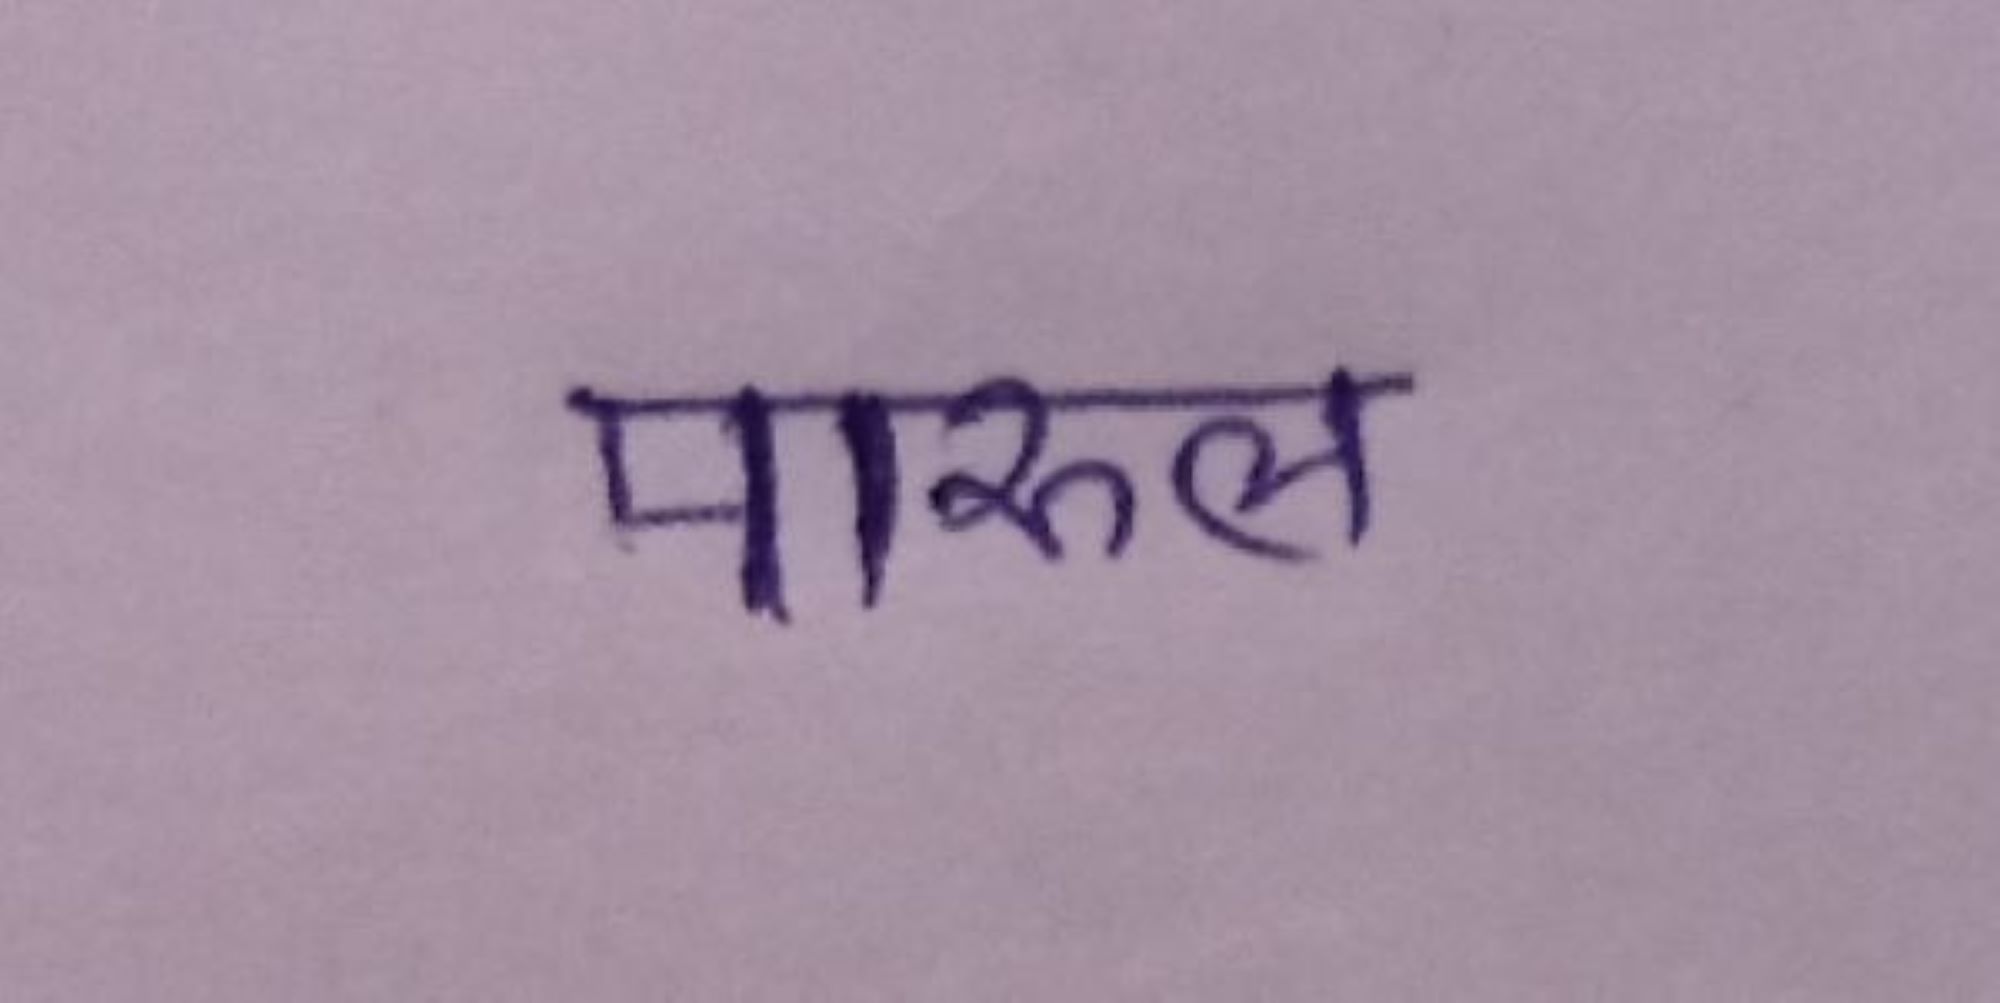 पारुल